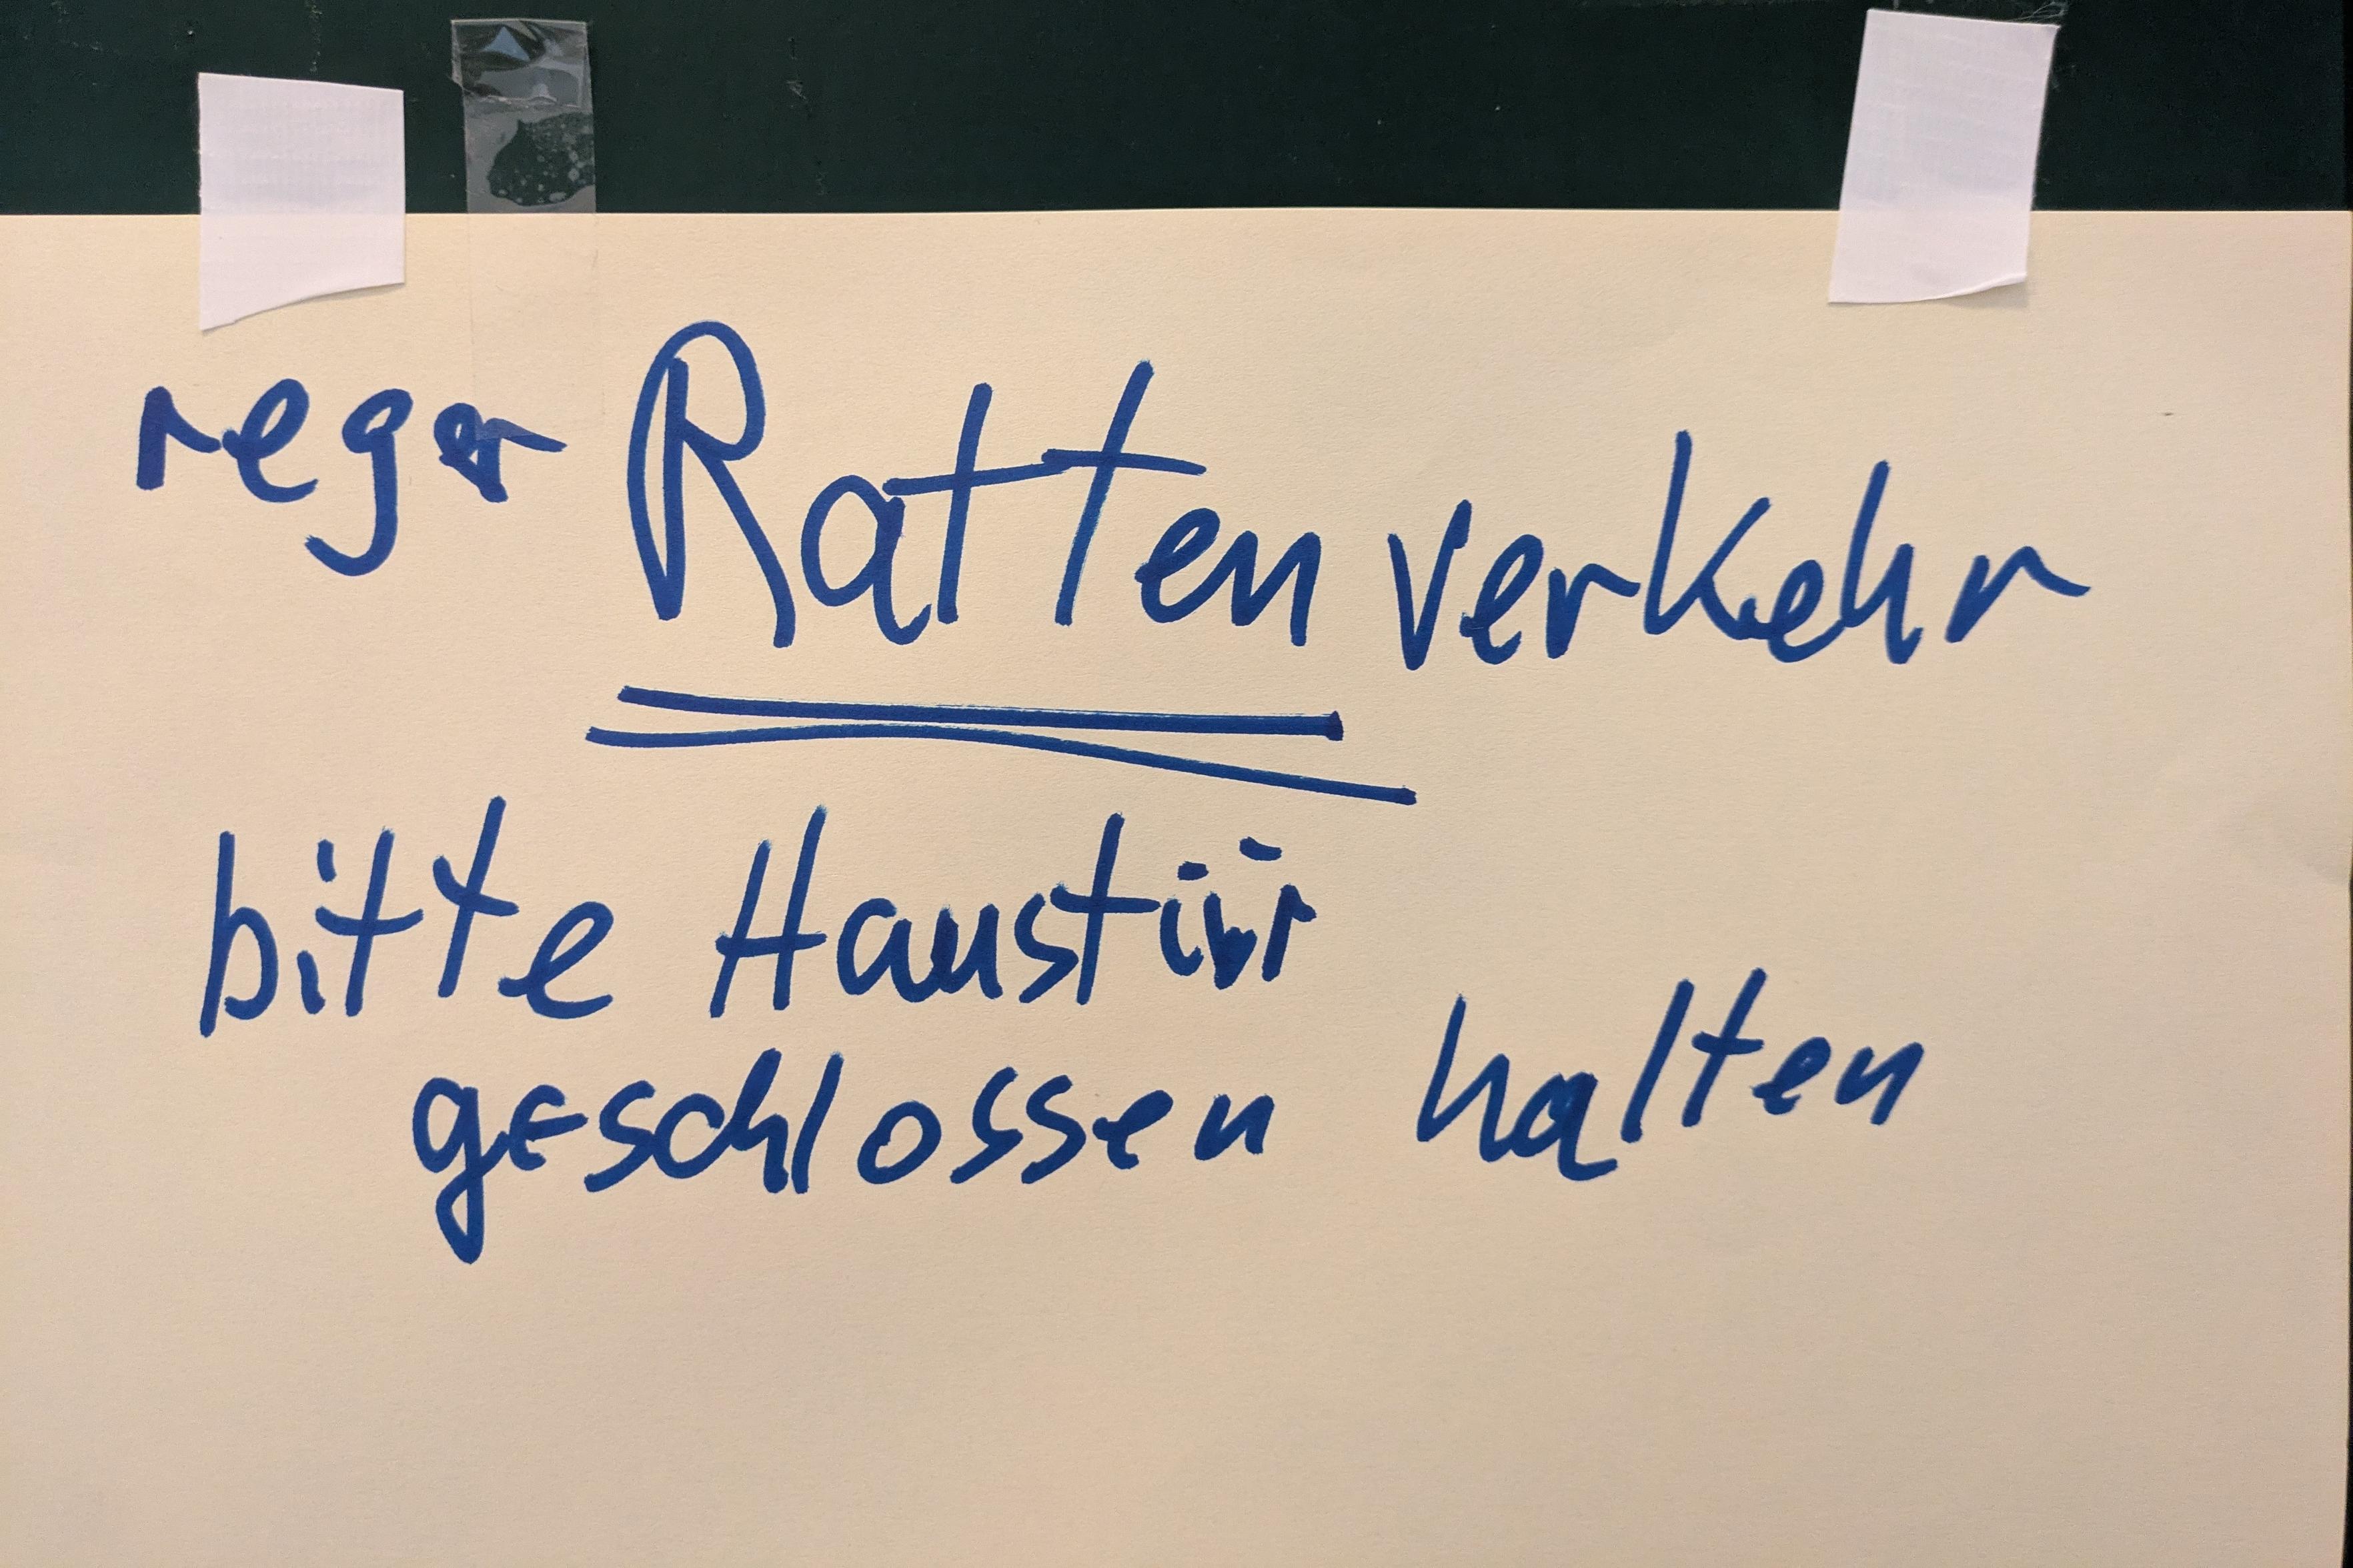 reger Rattenverkehr
bitte Haustür
geschlossen halten